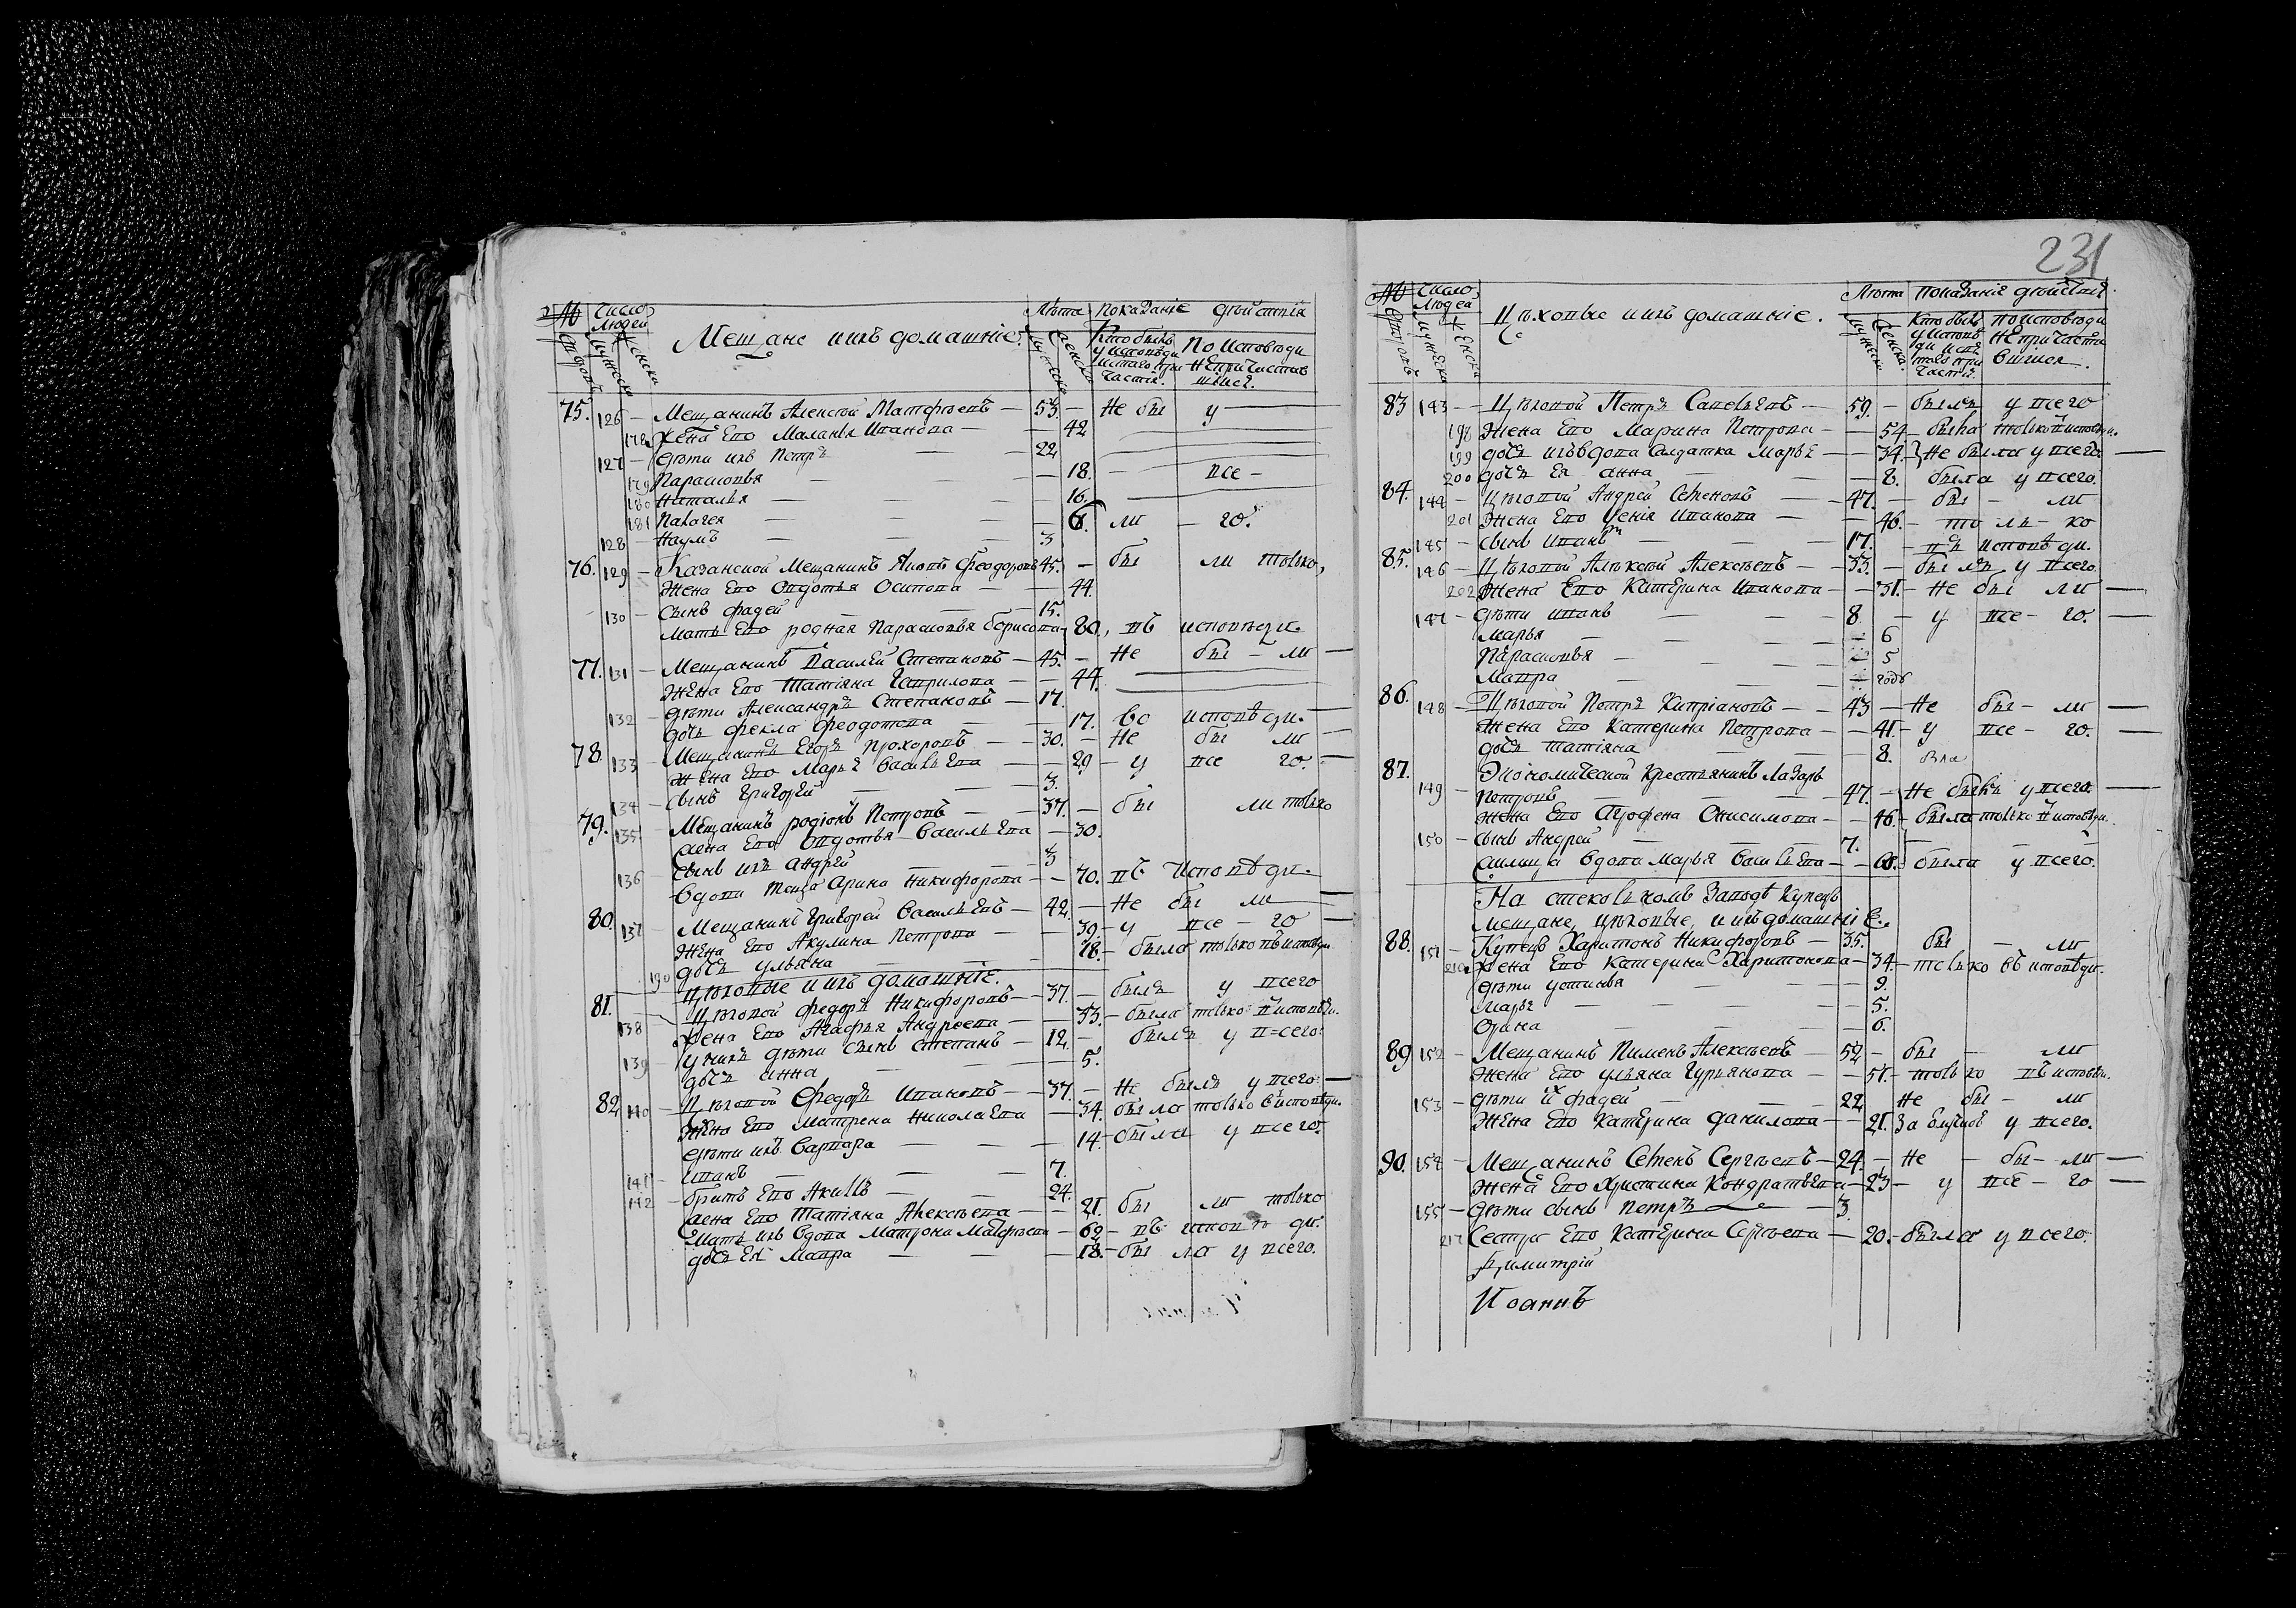 №
Число людей
Мещане ихъ домашніе.
Лѣта
показаніе дѣйствія
мужеска
женска
Кто былъ у исповѣди и святаго причастія.
По исповѣди не причастившися.
75. 126 — Мещанинъ Алексѣй Матфѣевъ — 53. — не бы у —
178 Жена Его Маланья Иванова — 42
127 — дѣти ихъ Петръ — 22
179 Парасковья — 18. — все —
180 Наталья — 16.
181 Палагея — 6. ли — го.
128 — Наумъ — 3
76. 129 — Казанской Мещанинъ Феодоровъ 45. — бы ли только,
Жена Его Овдотья Осипова — 44.
130 — сынъ фадей — 15.
мать Его родная Парасковья борисова 80, въ исповѣди
77. 131 — Мещанинъ Василей Степановъ — 45. — Не бы — ли —
Жена Его Татіяна Гаврилова — 44.
132 — дѣти Александръ Степановъ — 17.
дочь фекла феодотова — 17. во исповѣди. —
78. 133 — Мещанинъ Егоръ Прохоровъ — 30. — Не бы ли —
Жена Его Марья Васильева — 29 — у все го. —
134 — сынъ григорей — 3.
79. 135 — Мещанинъ родіонъ Петровъ — 37. — бы ли только
жена Его Овдотья Васильева — 30.
136 — сынъ ихъ андрей — 3
вдова теща арина никифорова — 70. въ исповѣди.
80. 137 — Мещанинъ григорей Васильевъ — 42. — Не бы ли —
Жена Его Акулина Петрова — 39. — у все — го —
190 дочь ульяна — 18. — была только въ исповѣди
Цѣховые ихъ домашніе.
81. 138 — Цѣховой федоръ Никифоровъ — 37. — былъ у всего
жена Его Агафья Андреева — 33. — была только въ исповѣди.
139 — у нихъ дѣти сынъ степанъ — 12. — былъ у всего.
дочь анна — 5.
82. 140 — Цѣховой Федоръ Ивановъ — 37. — Не былъ у всего —
Жена Его Матрена Николаева — 34. была только въ исповѣди.
дѣти ихъ варвара — 14 — была у всего.
141 — иванъ — 7.
142 — братъ Его — 24.
жена Его Татіяна Алексѣева — 21. бы ли только
Мать ихъ вдова Матрона Матфѣева — 62 — въ исповѣди.
дочь Ея мавра — 18. — бы ла у всего.
231
№
Число людей
Цѣховые ихъ домашніе.
Лѣта
показаніе дѣйствія.
мужеска
женска
Кто былъ у исповѣди и святаго причастія
по исповѣди не причастившися.
83 143 — Цѣховой Петръ Савельевъ — 59. — былъ у всего
198 Жена Его Марина Петрова — 54 — была только въ исповѣди.
199 дочь ихъ вдова салдатка Марья — 34. — Не была у всего —
200 дочь Ея анна — 8. была у всего.
84. 144 — Цѣховой Андрей Семеновъ — 47. — бы — ли
201 Жена Его Ксенія Иванова — 46. — то ль — ко
145 — сынъ иванъ — 17. — въ исповѣди.
85. 146 — Цѣховой Алексѣй Алексѣевъ — 33. — былъ у всего
202 Жена Его Катерина Иванова — 31. — Не бы ли —
147 — дѣти иванъ — 8 — у все — го. —
Марья — 6
Парасковья — 5
Мавра — годъ
86. 148 — Цѣховой Петръ Кипріановъ — 43 — Не бы — ли —
Жена Его Катерина Петрова — 41. — у все — го. —
дочь татіяна — 8.
87. Экономической крестьянинъ Лазарь
149 — Петровъ — 47. — Не былъ у всего. —
Жена Его Онисимова — 46. — была только въ исповѣди.
150 — сынъ Андрей — 7.
вдова марья Васильева — была у всего.
На стекольномъ заводѣ Купецъ
мещане, цѣховые, и ихъ домашніе.
88. 151 — Купецъ Харитонъ Никифоровъ — 35. бы — ли
Жена Его Катерина Харитонова — 34. — только въ исповѣди.
дѣти устинья — 9.
Марья — 5.
Орина — 6.
89 152 — Мещанинъ Пименъ Алексѣевъ — 52 — бы — ли
Жена Его ульяна Гурьянова — 51. — только въ исповѣди.
153 — дѣти ихъ фадей — 22 Не бы — ли
Жена Его Катерина данилова — 21. у всего.
90. 154 — Мещанинъ Семенъ Сергѣевъ — 24. — Не — бы — ли —
Жена Его Христина Кондратьева — 23 — у все — го —
155 — дѣти сынъ Петръ — 3.
217 Сестра Его Катерина Сергѣева — 20. — была у всего.
Димитрій
Иоаннъ